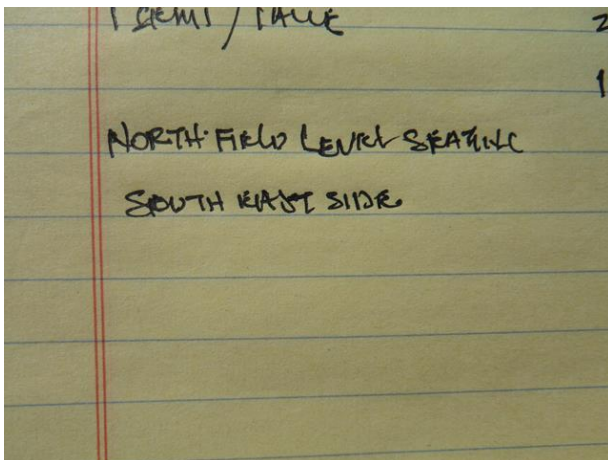 NORTH FIELD LEVEL SEATING
SOUTH EAST SIDE